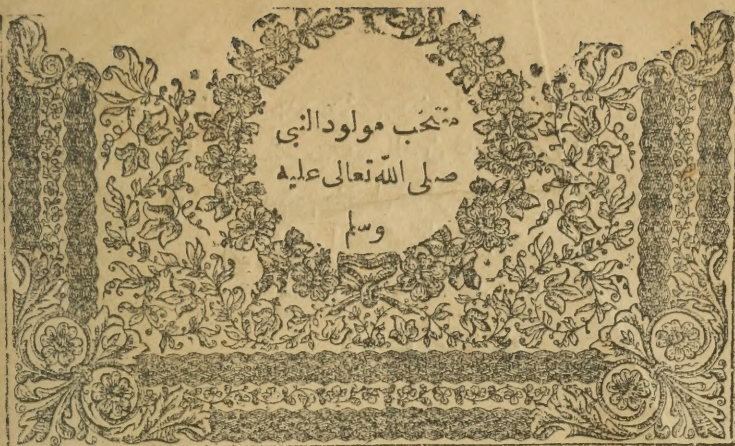 منتخب مولود النبى
صلى الله تعالى عليه
وسلم